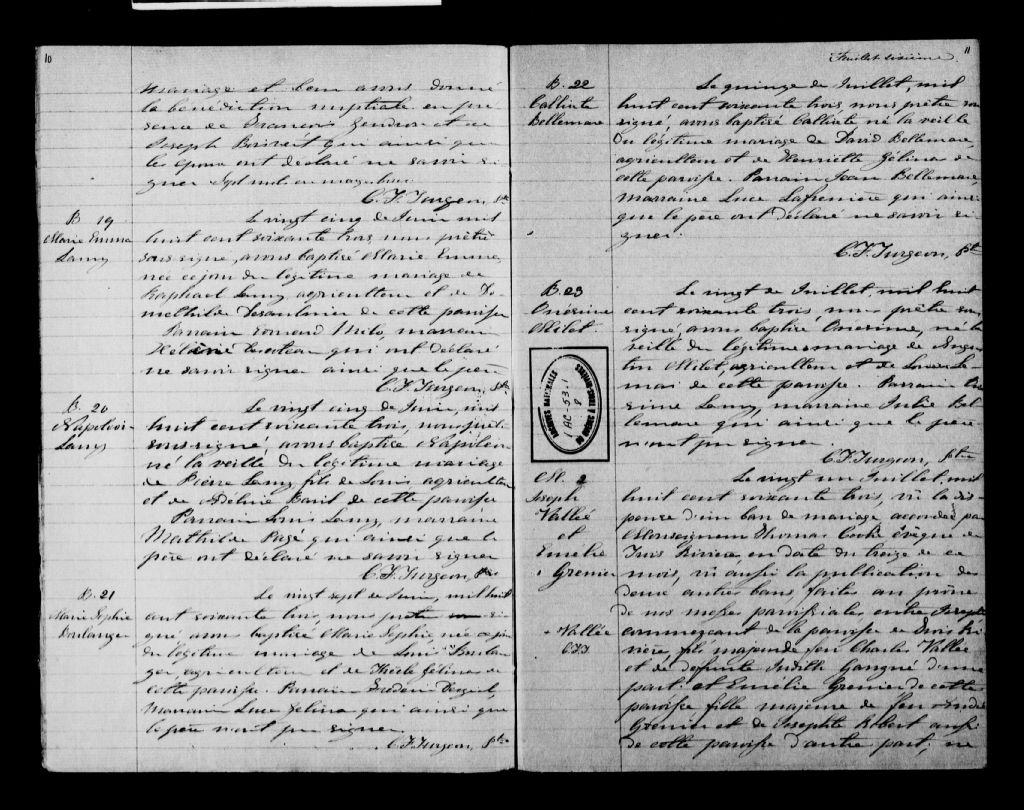 10
mariage et leur avons donné
la bénédiction nuptiale en pré
sence de François Gendron et de
Joseph Boisvert qui ainsi que
les époux ont déclaré ne savoir si
gner
C. F. Turgeon, Ptr
B 19
Marie Emma
Lamy
Le vingt cinq de Juin mil
huit cent soixante trois, nous prêtre
sous signé, avons baptisé Marie Emma,
née ce jour du légitime mariage de
Raphael Lamy agriculteur et de Do
methilde Desaulniers de cette paroisse
Parrain Milo, marraine
Hélène qui ont déclaré
ne savoir signer ainsi que le père
C. F. Turgeon, Ptr
B. 20
Napoléon
Lamy
Le vingt cinq de Juin, mil
huit cent soixante trois, nous prêtre
sous signé, avons baptisé Napoléon
né la veille du légitime mariage
de Pierre Lamy fils de Louis, agriculteur
et de Adeline Baril de cette paroisse
Parrain Louis Lamy, marraine
Mathilde Pagé qui ainsi que le
père ont déclaré ne savoir signer
C. F. Turgeon, Ptr
B. 21
Marie Sophie
Boulanger
Le vingt sept de Juin, mil huit
cent soixante trois, nous prêtre sous si
gné avons baptisé Marie Sophie, née ce jour
du légitime mariage de Louis Boulan
ger, agriculteur et de Thècle Gélina de
cette paroisse. Parrain
Marraine Luce Gélina qui ainsi que
le père n'ont pu signer.
C. F. Turgeon, Ptr
11
Feuillet sixième
B. 22
Calixte
Bellemare
Le quinze de Juillet, mil
huit cent soixante trois, nous prêtre sous
signé, avons baptisé Calixte né la veille
du légitime mariage de David Bellemare,
agriculteur et de Henriette Gélina de
cette paroisse. Parrain Jean Bellemare,
marraine Luce Lafrenière qui ainsi
que le père ont déclaré ne savoir si
gner.
C. F. Turgeon, Ptr
B. 23
Onésime
Milot
Le vingt de Juillet, mil huit
cent soixante trois, nous prêtre sous
signé, avons baptisé Onésime, né la
veille du légitime mariage de Augus
tin Milot, agriculteur et de Louise Le
mai de cette paroisse. Parrain Oné
sime Lamy, marraine Julie Bel
lemare qui ainsi que le père
n'ont pu signer
C. F. Turgeon, Ptre
ARCHIVES NATIONALES
1 AC-53-1
8
M. 2
Joseph
Vallée
et
Emélie
Grenier
Le vingt un Juillet, mil
huit cent soixante trois, vu la dis-
pense d'un ban de mariage accordée par
Monseigneur Thomas Cooke évêque de
Trois Rivières en date du treize de ce
mois, vu aussi la publication des
deux autres bans, faites au prône
de nos messes paroissiales entre Joseph
+ Vallée
C.F.T
commerçant de la paroisse de Trois Ri
vière, fils majeur de feu Charles Vallée
et de défunte Judith Gangné d'une
part; et Emélie Grenier de cette
paroisse fille majeure de feu André
Grenier et de Josephte Robert aussi
de cette paroisse d'autre part; ne